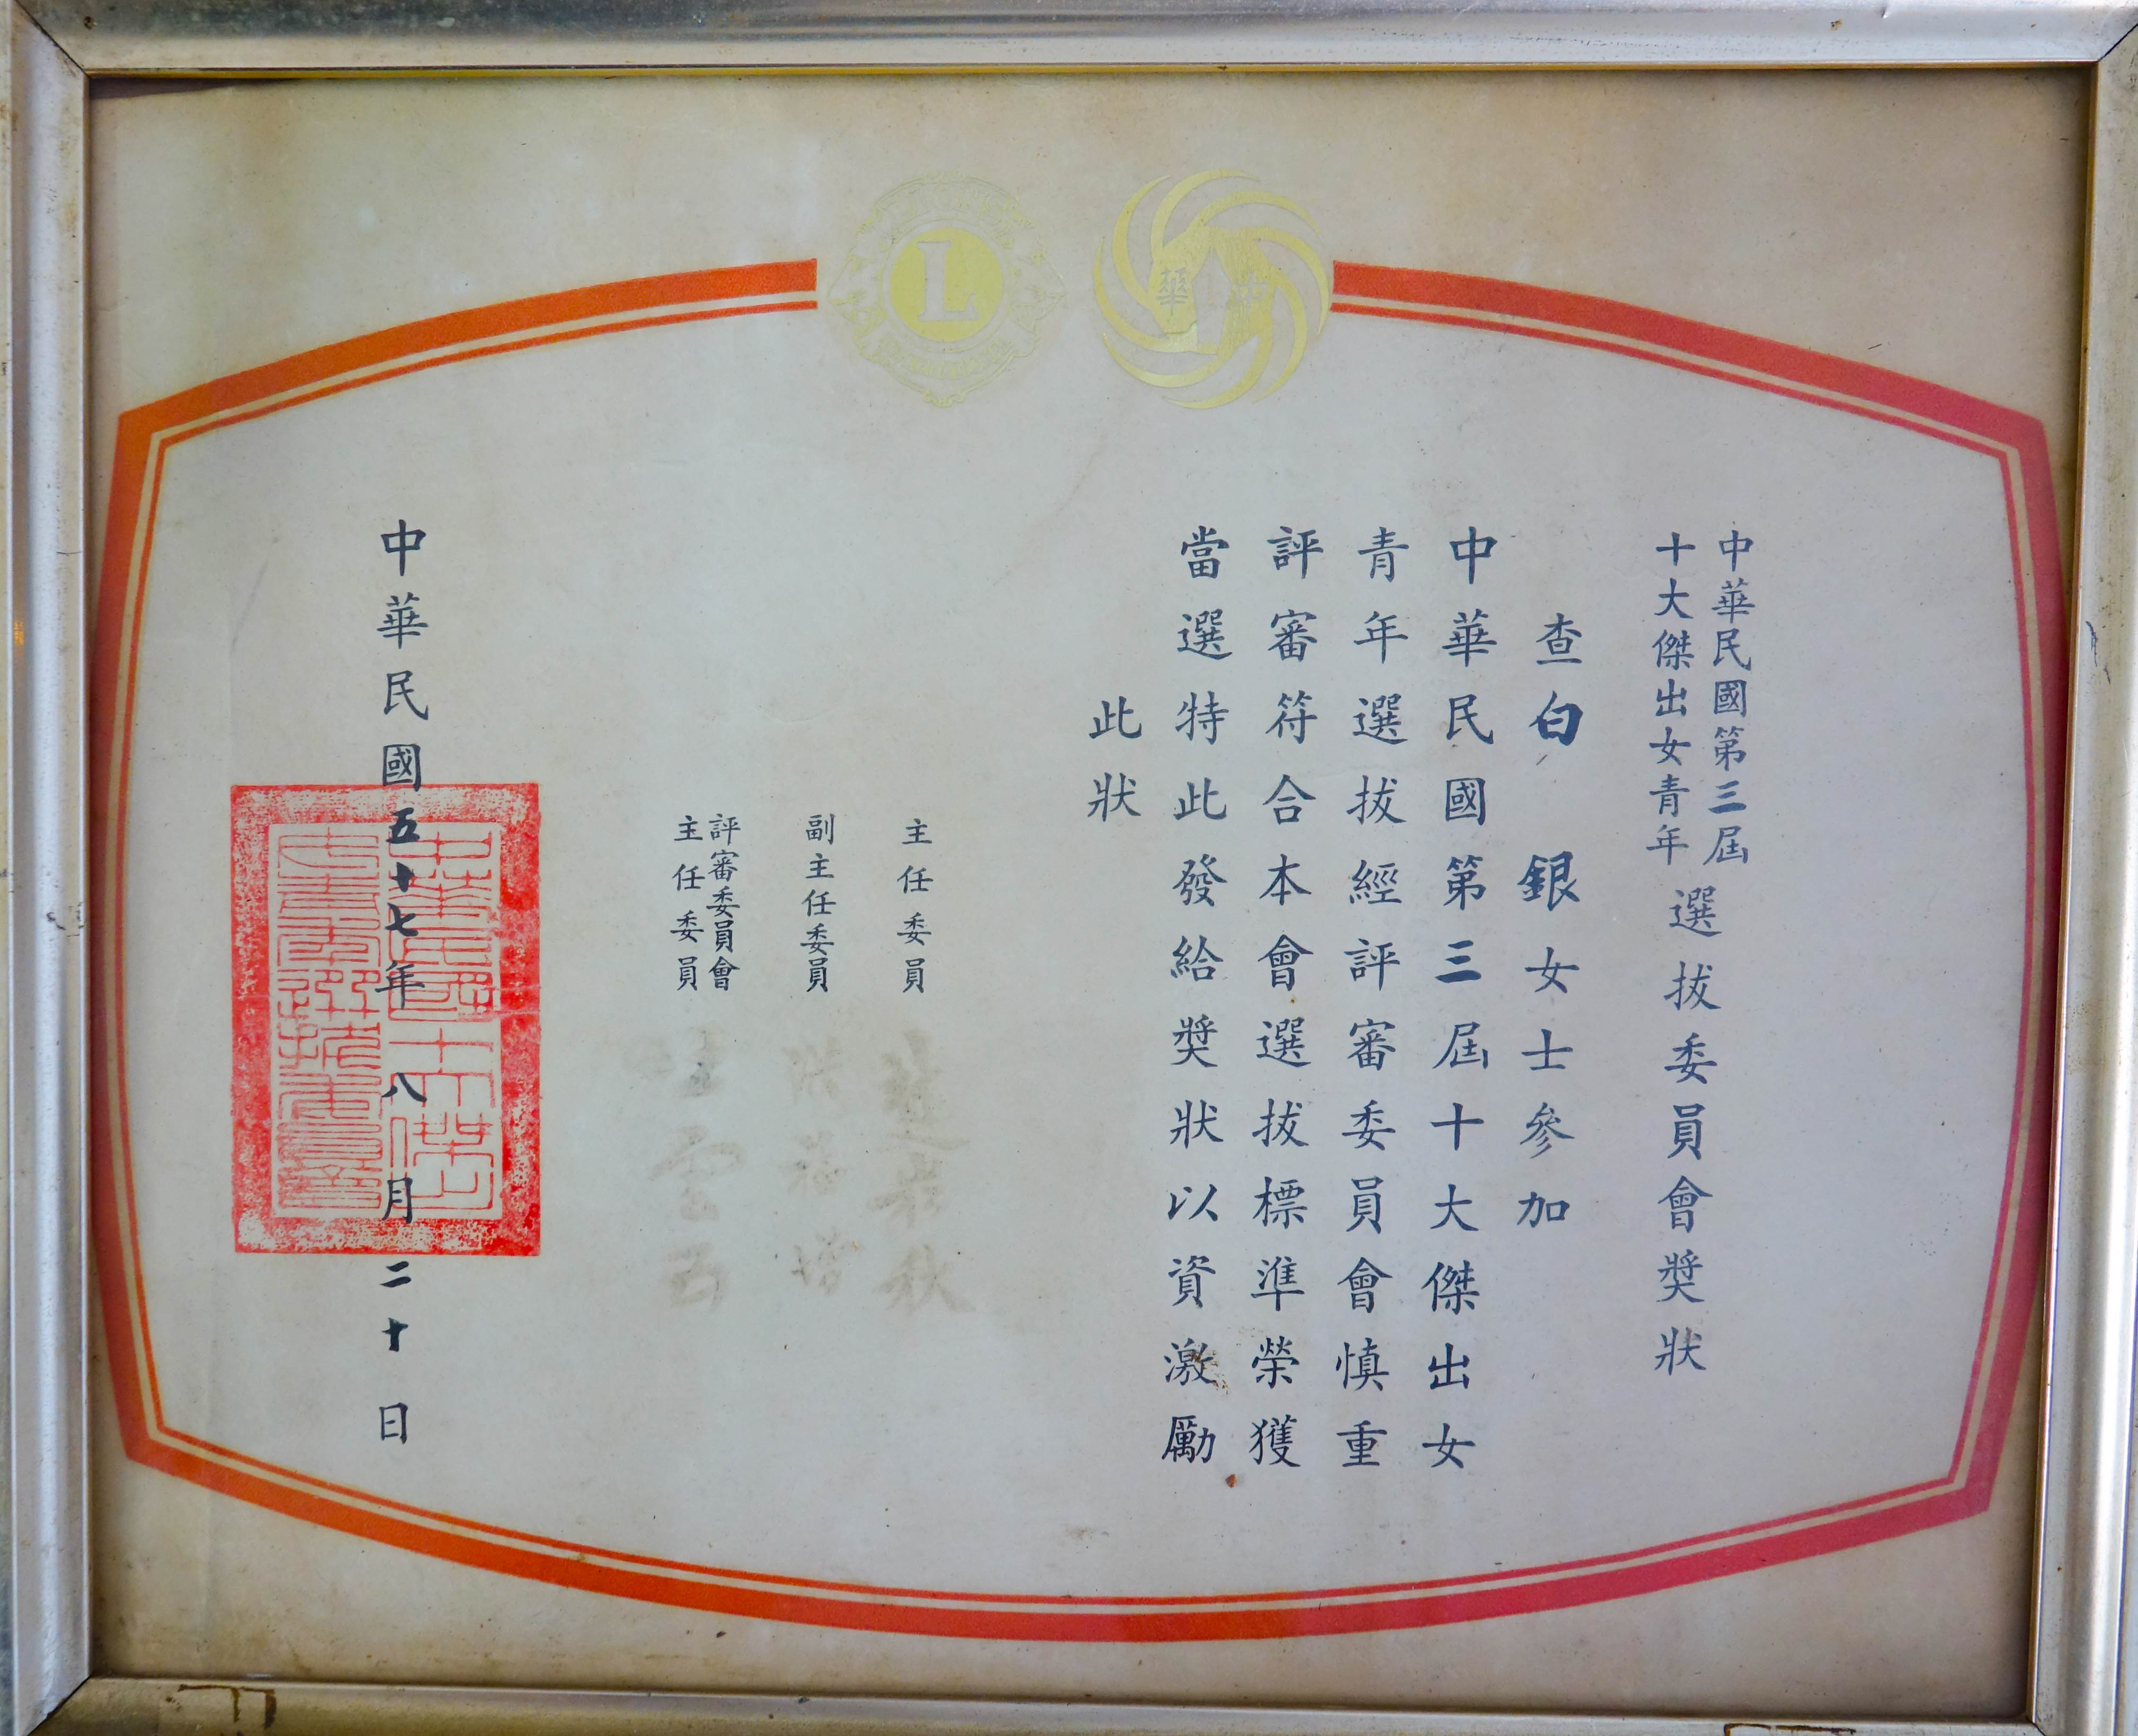 L
華中
中華民國第三屆
十大傑出女青年
選拔委員會獎狀
查白 銀女士參加
中華民國第三屆十大傑出女
青年選拔經評審委員會慎重
評審符合本會選拔標準榮獲
當選特此發給獎狀以資激勵
此狀
主任委員
副主任委員
評審委員會
主任委員
中華民國五十七年八月二十日